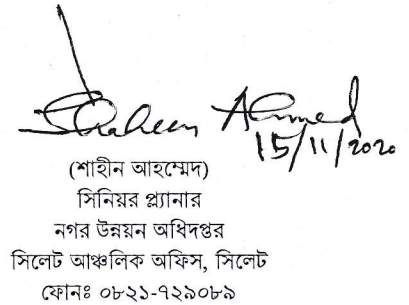 Shaheen Ahmed
15/11/2020
(শাহীন আহম্মেদ)
সিনিয়র প্ল্যানার
নগর উন্নয়ন অধিদপ্তর
সিলেট আঞ্চলিক অফিস, সিলেট
ফোনঃ ০৮২১-৭২৯০৮৯